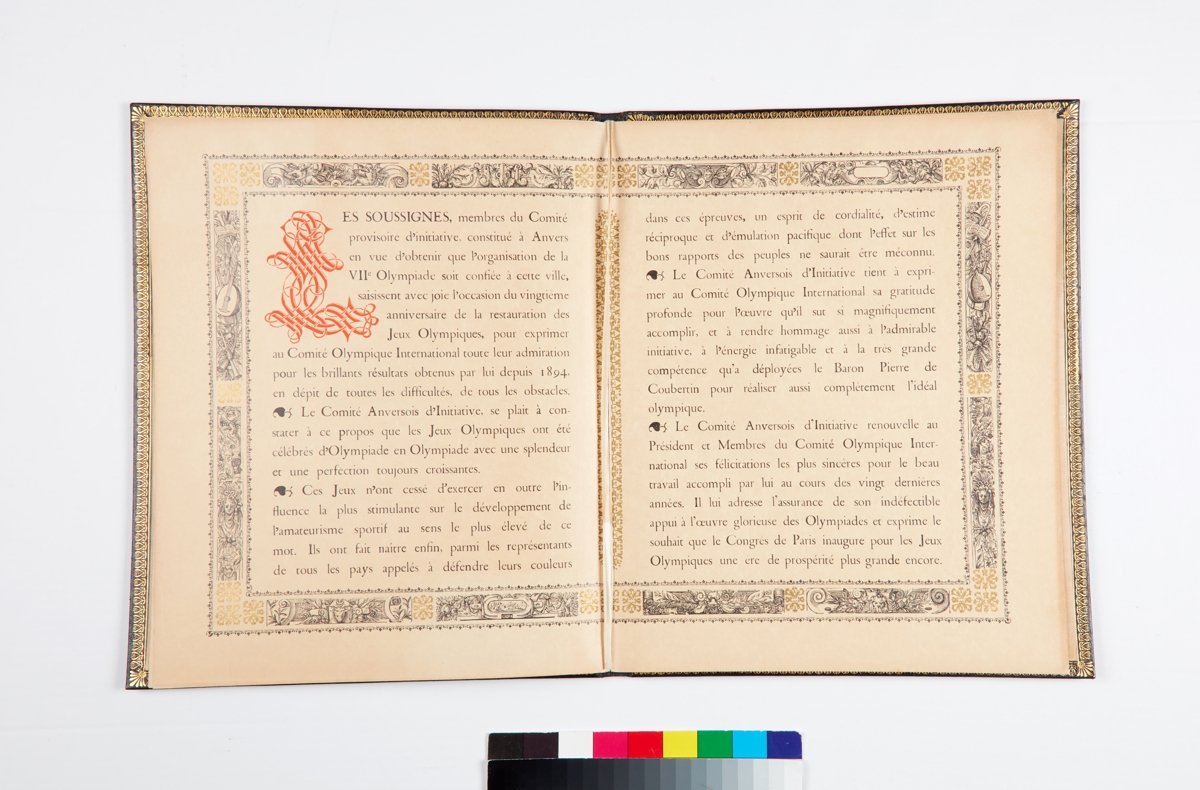 LES SOUSSIGNES, membres du Comité
provisoire d'initiative, constitué à Anvers
en vue d'obtenir que l'organisation de la
VIIe Olympiade soit confiée à cette ville,
saisissent avec joie l'occasion du vingtième
anniversaire de la restauration des
Jeux Olympiques, pour exprimer
au Comité Olympique International toute leur admiration
pour les brillants résultats obtenus par lui depuis 1894,
en dépit de toutes les difficultés, de tous les obstacles.
Le Comité Anversois d'Initiative, se plait à con-
stater à ce propos que les Jeux Olympiques ont été
célébrés d'Olympiade en Olympiade avec une splendeur
et une perfection toujours croissantes.
Ces Jeux n'ont cessé d'exercer en outre l'in-
fluence la plus stimulante sur le développement de
l'amateurisme sportif au sens le plus élevé de ce
mot. Ils ont fait naitre enfin, parmi les représentants
de tous les pays appelés à défendre leurs couleurs
dans ces épreuves, un esprit de cordialité, d'estime
réciproque et d'émulation pacifique dont l'effet sur les
bons rapports des peuples ne saurait être méconnu.
Le Comité Anversois d'Initiative tient à expri-
mer au Comité Olympique International sa gratitude
profonde pour l'œuvre qu'il sut si magnifiquement
accomplir, et à rendre hommage aussi à l'admirable
initiative, à l'énergie infatigable et à la très grande
compétence qu'a déployées le Baron Pierre de
Coubertin pour réaliser aussi complètement l'idéal
olympique.
Le Comité Anversois d'Initiative renouvelle au
Président et Membres du Comité Olympique Inter-
national ses félicitations les plus sincères pour le beau
travail accompli par lui au cours des vingt dernières
années. Il lui adresse l'assurance de son indéfectible
appui à l'œuvre glorieuse des Olympiades et exprime le
souhait que le Congrès de Paris inaugure pour les Jeux
Olympiques une ere de prospérité plus grande encore.